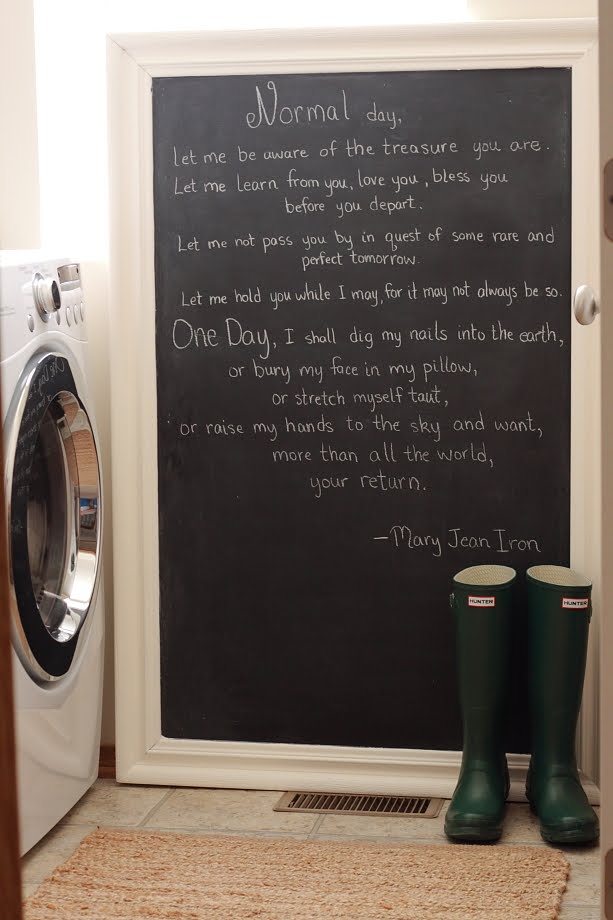 Normal day,
let me be aware of the treasure you are.
Let me learn from you, love you, bless you
before you depart.
Let me not pass you by in quest of some rare and
perfect tomorrow.
Let me hold you while I may, for it may not always be so.
One Day, I shall dig my nails into the earth,
or bury my face in my pillow,
or stretch myself taut,
or raise my hands to the sky and want,
more than all the world,
your return.
-Mary Jean Iron
HUNTER
HUNTER